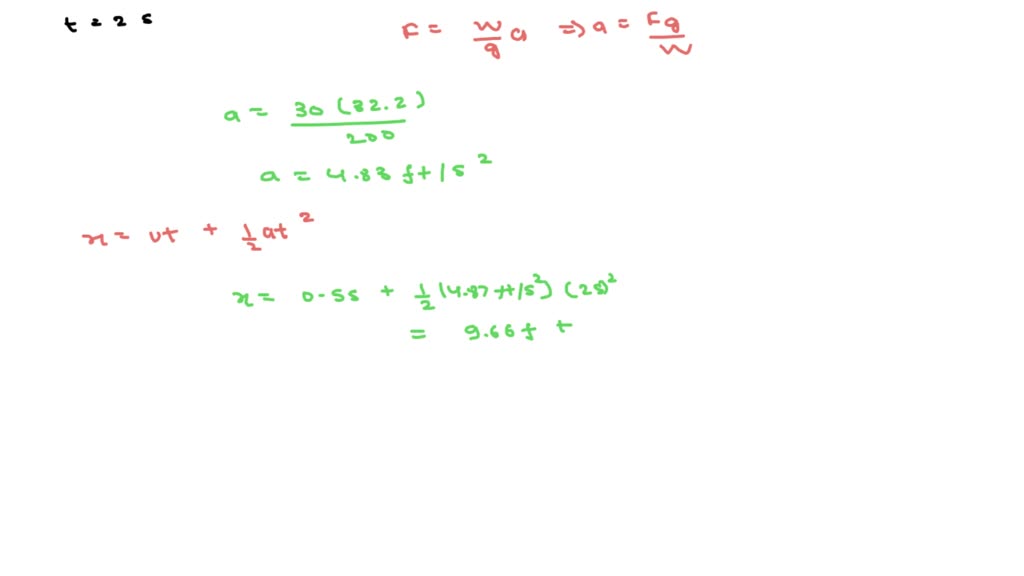 t = 2 s
F = W/g a ⇒ a = Fg/W
a = 30 (32.2)/200
a = 4.83 ft/s²
x = ut + 1/2 at²
x = 0.5s + 1/2 (4.87 ft/s²) (2s)²
= 9.66 ft